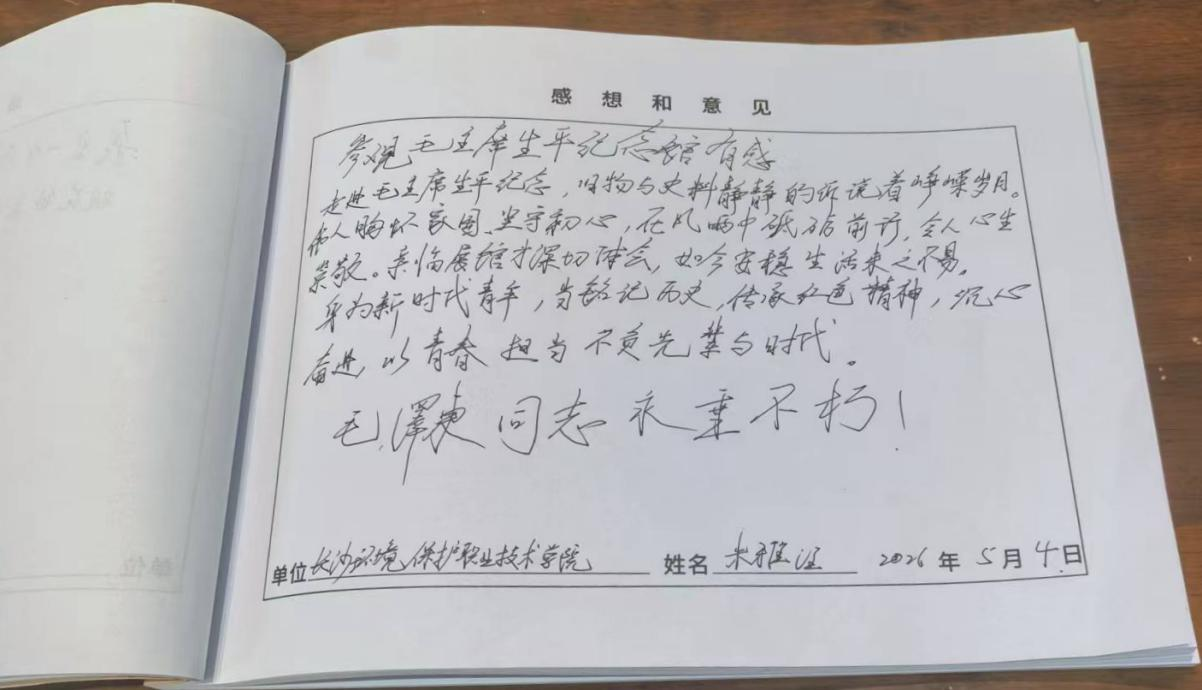 感想和意见
参观毛主席生平纪念馆有感
走进毛主席生平纪念,旧物与史料静静的诉说着峥嵘岁月。
伟人胸怀家国、坚守初心,在风雨中砥砺前行,令人心生
崇敬。亲临展馆才深切体会,如今安稳生活来之不易。
身为新时代青年,当铭记历史,传承红色精神,沉心
奋进,以青春担当不负先辈与时代。
毛泽东同志永垂不朽!
单位 长沙环境保护职业技术学院 姓名 朱雅 2026年5月4日